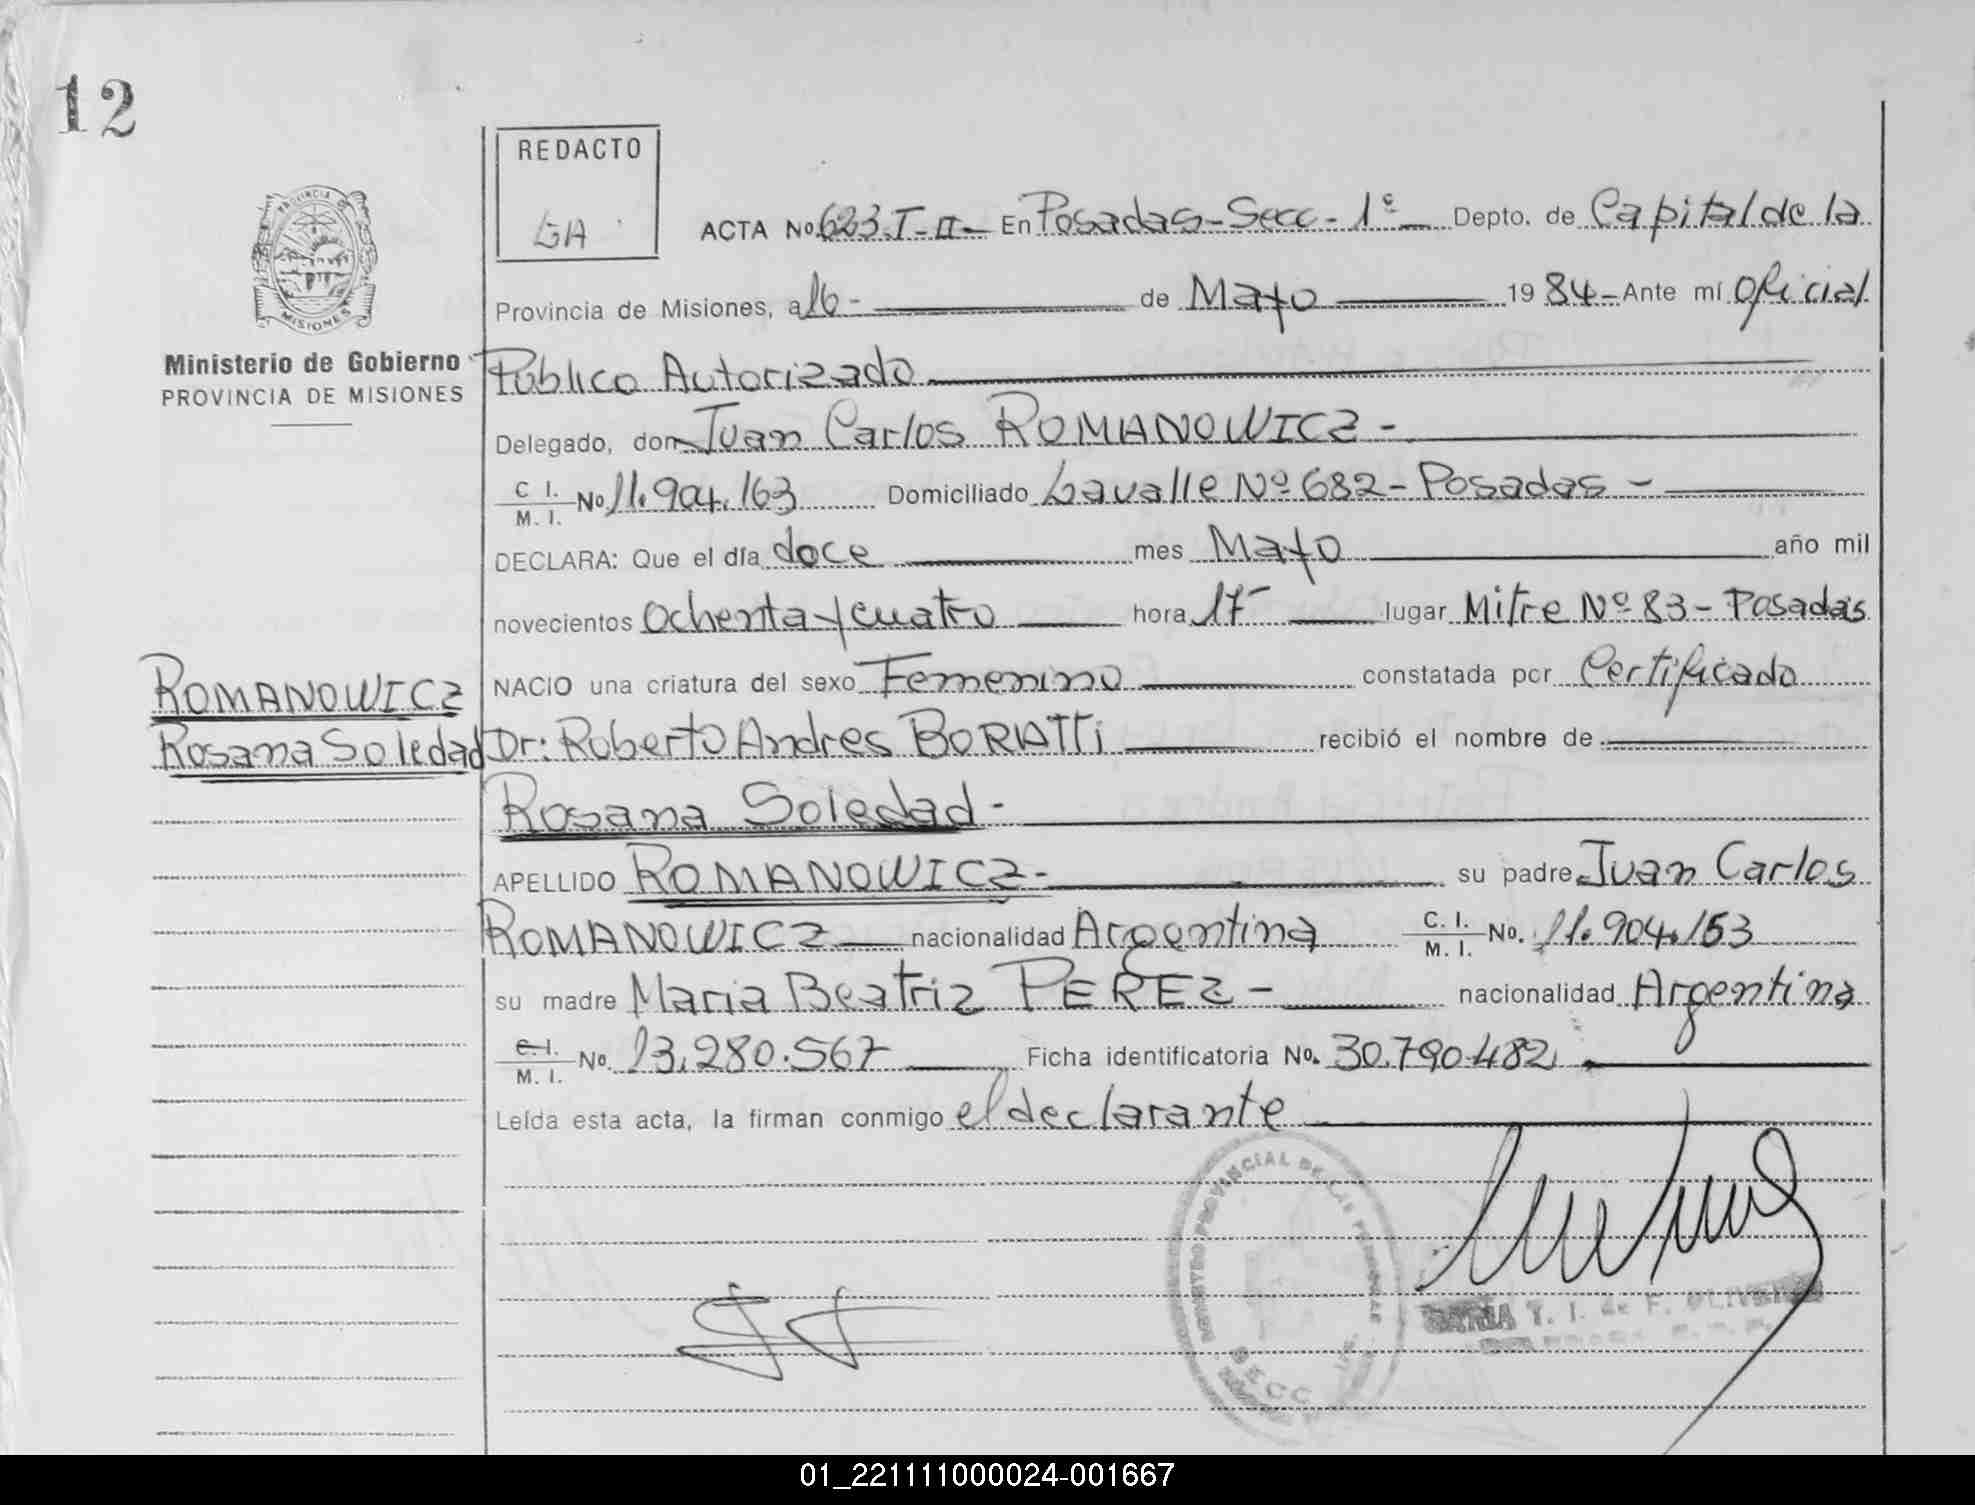 12
REDACTO
PROVINCIA DE
MISIONES
ACTA No. 623.I-II- En Posadas-Secc-1º Depto. de Capital de la
Provincia de Misiones, a 16- de Mayo 19 84- Ante mí Oficial
Ministerio de Gobierno
PROVINCIA DE MISIONES
Público Autorizado
Delegado, don Juan Carlos ROMANOWICZ -
C I. M. I. No. 11.904.163 Domiciliado Lavalle Nº 682 - Posadas -
DECLARA: Que el día doce mes Mayo año mil
novecientos ochenta y cuatro hora 17- lugar Mitre Nº 83 - Posadas
NACIO una criatura del sexo Femenino constatada por Certificado
ROMANOWICZ
Rosana Soledad
Dr: Roberto Andres BORIATTi recibió el nombre de
Rosana Soledad -
APELLIDO ROMANOWICZ - su padre Juan Carlos
ROMANOWICZ nacionalidad Argentina C. I. M. I. No. 11.904.153
su madre Maria Beatriz PEREZ - nacionalidad Argentina
C. I. M. I. No. 13.280.567 Ficha identificatoria No. 30.790.482
Leída esta acta, la firman conmigo el declarante
REGISTRO PROVINCIAL DE LAS PERSONAS
SECC
T. I. de F. OLIVEIRA
01_221111000024-001667